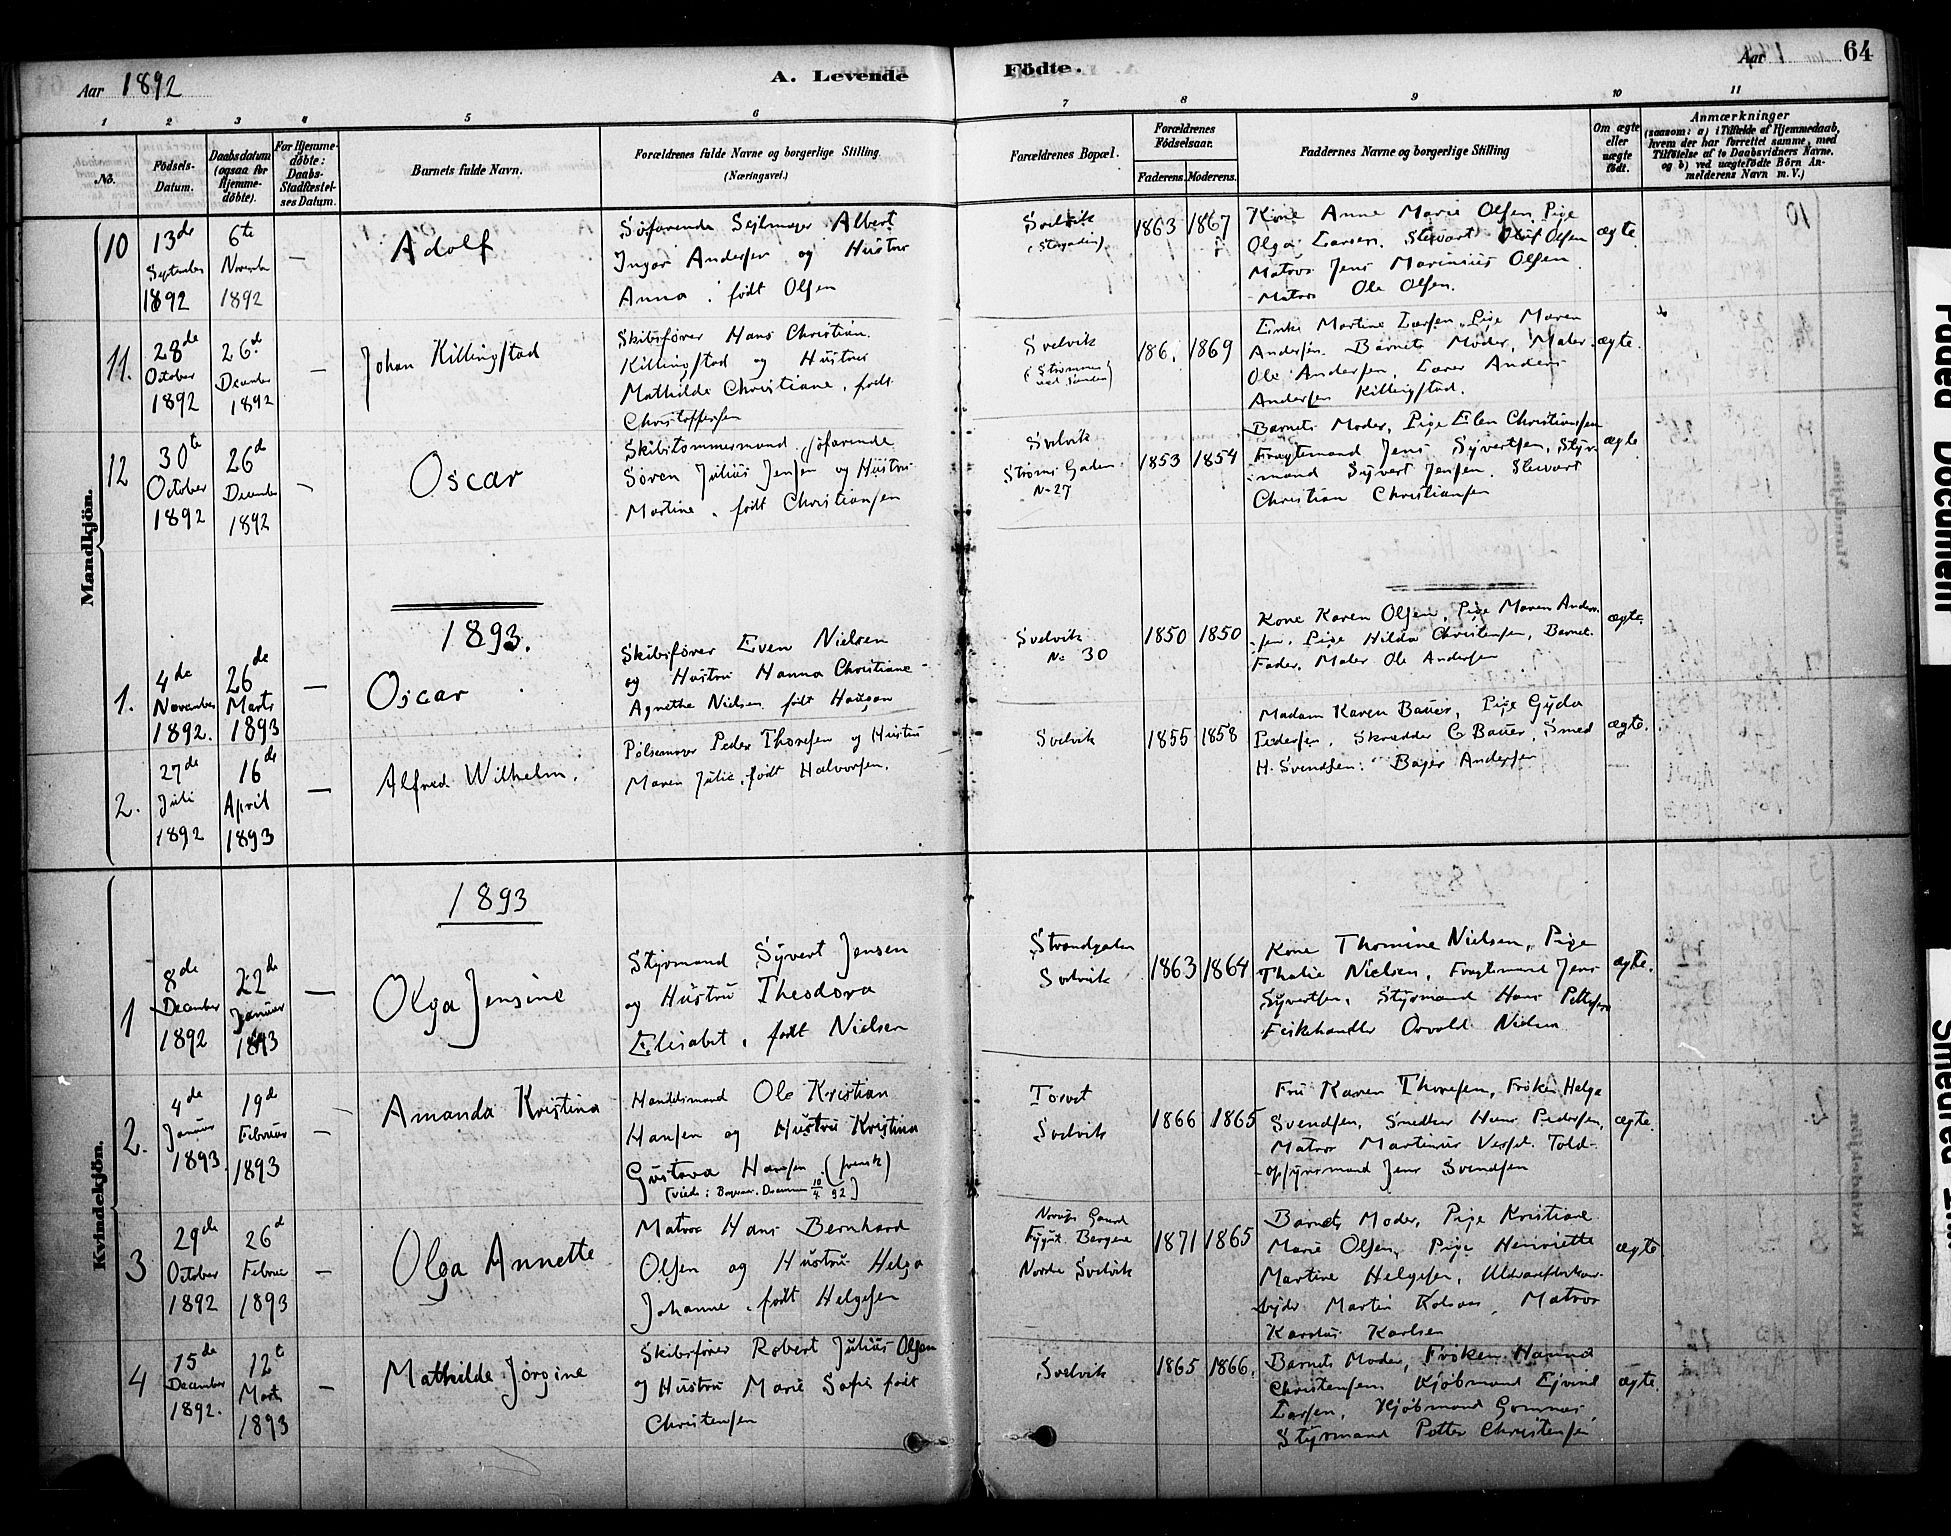 Aar 1892
A. Levende
Födte.
Aar
64
1
2
3
4
5
6
7
8
9
10
11
No.
Födsels-
Datum.
Daabsdatum
(ogsaa for
Hjemme-
döbte).
For Hjemme-
döbte:
Daabs-
Stadfæstel-
ses Datum.
Barnets fulde Navn.
Forældrenes fulde Navne og borgerlige Stilling
(Næringsvei.)
Forældrenes Bopæl.
Forældrenes
Födselsaar.
Faderens. Moderens.
Faddernes Navne og borgerlige Stilling
Om ægte
eller
uægte
födt.
Anmærkninger
(saasom: a) i Tilfælde af Hjemmedaab,
hvem der har forrettet samme, med
Tilföielse af to Daabsvidners Navne.
og b) ved uægtefödte Börn An-
melderens Navn m. V.)
Mandkjön.
10
13de
September
1892
6te
November
1892
—
Adolf
Söfarende Sejlmager Albert
Ingvar Andersen og Hustru
Anna, født Olsen
Svelvik
(Storgaden)
1863
1867
Kone Anne Marie Olsen, Pige
Olga Larsen, Stewart Oluf Olsen
Matros Jens Marinius Olsen
Matros Ole Olsen.
ægte
11.
28de
October
1892
26d
December
1892
—
Johan Killingstad
Skibsfører Hans Christian
Killingstad og Hustru
Mathilde Christiane, født
Christoffersen
Svelvik
(Strømmen
ved Sanden)
186
1869
Enke Martine Larsen, Pige Maren
Andersen, Barnets Moder, Maler
Ole Andersen, Lærer Anders
Andersen Killingstad.
ægte.
12
30te
October
1892
26de
December
1892
—
Oscar
Skibstømmermand, søfarende
Søren Julius Jensen og Hustru
Martine, født Christiansen
Svelvik
Strøms Gaden
No 27
1853
1854
Barnets Moder, Pige Elen Christiansen
Fragtemand Jens Syvertsen, Styr-
mand Syvert Jensen, Stewart
Christian Christiansen
ægte
1893.
1.
4de
November
1892.
26de
Marts
1893
—
Oscar
Skibsfører Even Nielsen
og Hustru Hanna Christiane
Agnethe Nielsen født Haugan
Svelvik
No 30
1850
1850
Kone Karen Olsen, Pige Maren Ander-
sen, Pige Hilda Christensen, Barnets
Fader, Maler Ole Andersen
ægte.
2.
27de
Juli
1892
16de
April
1893
—
Alfred Wilhelm.
Pølsemager Peder Thoresen og Hustru
Maren Julie, født Halvorsen.
Svelvik
1855
1858
Madam Karen Bauer, Pige Gyda
Pedersen, Skrædder C Bauer, Smed
H. Svendsen, Bager Andersen
ægte.
Kvindekjön.
1893
1
8de
December
1892
22de
Januar
1893
—
Olga Jensine
Styrmand Syvert Jensen
og Hustru Theodora
Elisabet, født Nielsen
Strandgaten
Svelvik
1863
1864
Kone Thomine Nielsen, Pige
Thalie Nielsen, Fragtemand Jens
Syvertsen, Styrmand Hans Pettersen
Fiskehandler Osvald Nielsen
ægte.
2.
4de
Januar
1893.
19d
Februar
1893
—
Amanda Kristina
Handelsmand Ole Kristian
Hansen og Hustru Kristina
Gustava Hansen (svensk)
Torvet
Svelvik
1866
1865
Fru Karen Thoresen, Frøken Helga
Svendsen, Snedker Hans Pedersen,
Matros Martinius Told-
opsynsmand Jens Svendsen
ægte.
3
29de
October
1892
26d
Februar
1893
—
Olga Annette
Matros Hans Bernhard
Olsen og Hustru Helga
Johanne, født Helgesen
Bergene
Nordre Svelvik
1871
1865
Barnets Moder, Pige Kristiane
Marie Olsen, Pige Henriette
Martine Helgesen,
Martin Kolsaas, Matros
Karolus Karlsen
ægte
4
15de
December
1892.
12te
Marts
1893
—
Mathilde Jørgine
Skibsfører Robert Julius Olsen
og Hustru Marie Sofie født
Christensen
Svelvik
1865
1866.
Barnets Moder, Frøken Hanna
Christensen, Kjøbmand Ejvind
Larsen, Kjøbmand Gommes
Styrmand Petter Christensen
ægte.
Faded Document